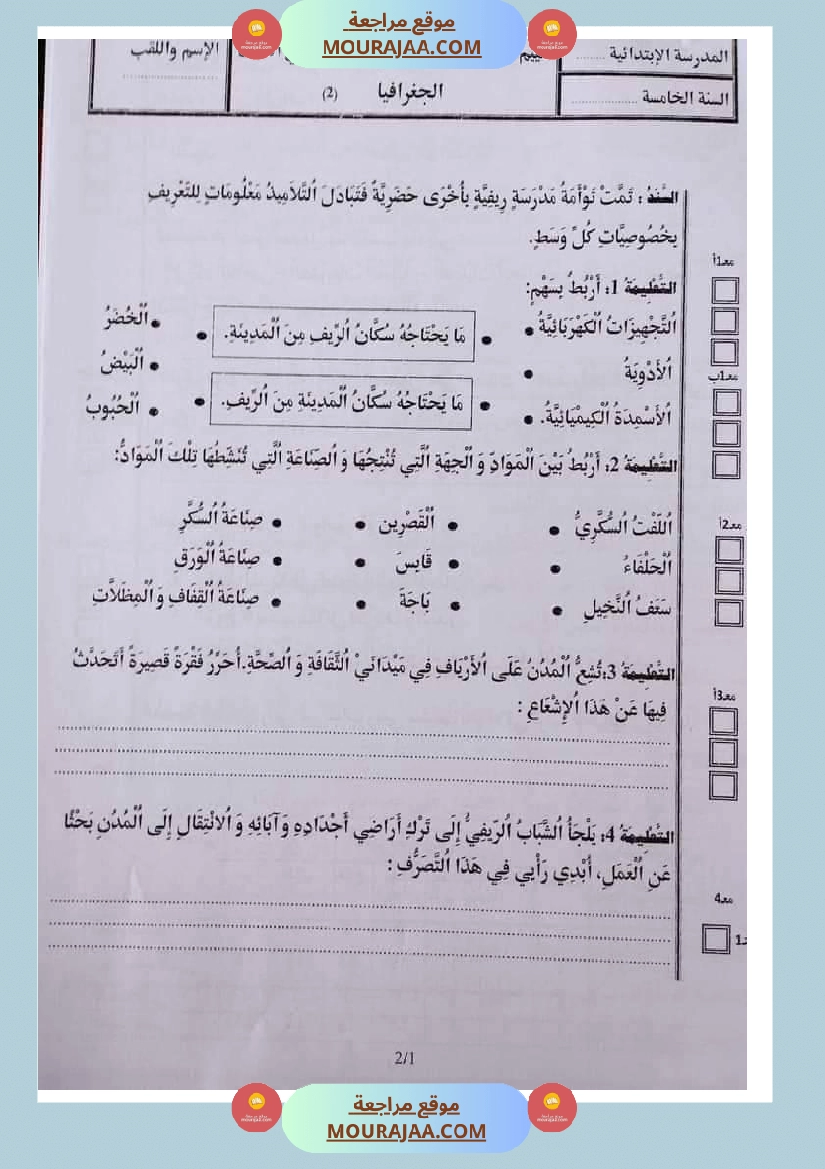 موقع مراجعة
MOURAJAA.COM
المدرسة الإبتدائية ..........
الإسم واللقب
......................
السنة الخامسة ..................
الجغرافيا (2)
السَّنَدُ : تَمَّتْ تَوْأَمَةُ مَدْرَسَةٍ رِيفِيَّةٍ بِأُخْرَى حَضَرِيَّةٌ فَتَبَادَلَ اُلتَّلَامِيذُ مَعْلُومَاتٍ لِلتَّعْرِيفِ
بِخُصُوصِيَّاتِ كُلِّ وَسَطٍ.
معـ1أ
التَّعْلِيمَةُ 1: أَرْبُطُ بِسَهْمٍ:
التَّجْهِيزَاتُ اُلْكَهْرَبَائِيَّةُ • • مَا يَحْتَاجُهُ سُكَّانُ اُلرِّيفِ مِنَ اُلْمَدِينَةِ. • • اُلْخُضَرُ
الأَدْوِيَةُ • • اُلْبَيْضُ
معـ1ب
اُلأَسْمِدَةُ اُلْكِيمْيَائِيَّةُ. • • مَا يَحْتَاجُهُ سُكَّانُ اُلْمَدِينَةِ مِنَ اُلرِّيفِ. • • اُلْحُبُوبُ
التَّعْلِيمَةُ 2: أَرْبُطُ بَيْنَ اُلْمَوَادِّ وَ اُلْجِهَةِ اُلَّتِي تُنْتِجُهَا وَ اُلصِّنَاعَةِ اُلَّتِي تُنَشِّطُهَا تِلْكَ اُلْمَوَادُّ:
معـ2أ
اُللَّفْتُ اُلسُّكَّرِيُّ • • اُلْقَصْرِين • • صِنَاعَةُ اُلسُّكَّرِ
اُلْحَلْفَاءُ • • قَابِسَ • • صِنَاعَةُ اُلْوَرَقِ
سَعَفُ اُلنَّخِيلِ • • بَاجَةَ • • صِنَاعَةُ اُلْقِفَافِ وَ اُلْمِظَلَّاتِ
التَّعْلِيمَةُ 3:تُشِعُّ اُلْمُدُنُ عَلَى اُلأَرْيَافِ فِي مَيْدَانَيْ اُلثَّقَافَةِ وَ اُلصِّحَّةِ.أُحَرِّرُ فَقْرَةً قَصِيرَةً أَتَحَدَّثُ
معـ3أ
فِيهَا عَنْ هَذَا اُلإِشْعَاعِ :
التَّعْلِيمَةُ 4: يَلْجَأُ اُلشَّبَابُ اُلرِّيفِيُّ إِلَى تَرْكِ أَرَاضِي أَجْدَادِهِ وَآبَائِهِ وَ اُلانْتِقَالِ إِلَى اُلْمُدُنِ بَحْثًا
عَنِ اُلْعَمَلِ، أُبْدِي رَأْيِي فِي هَذَا اُلتَّصَرُّفِ :
معـ4
2/1
موقع مراجعة
MOURAJAA.COM